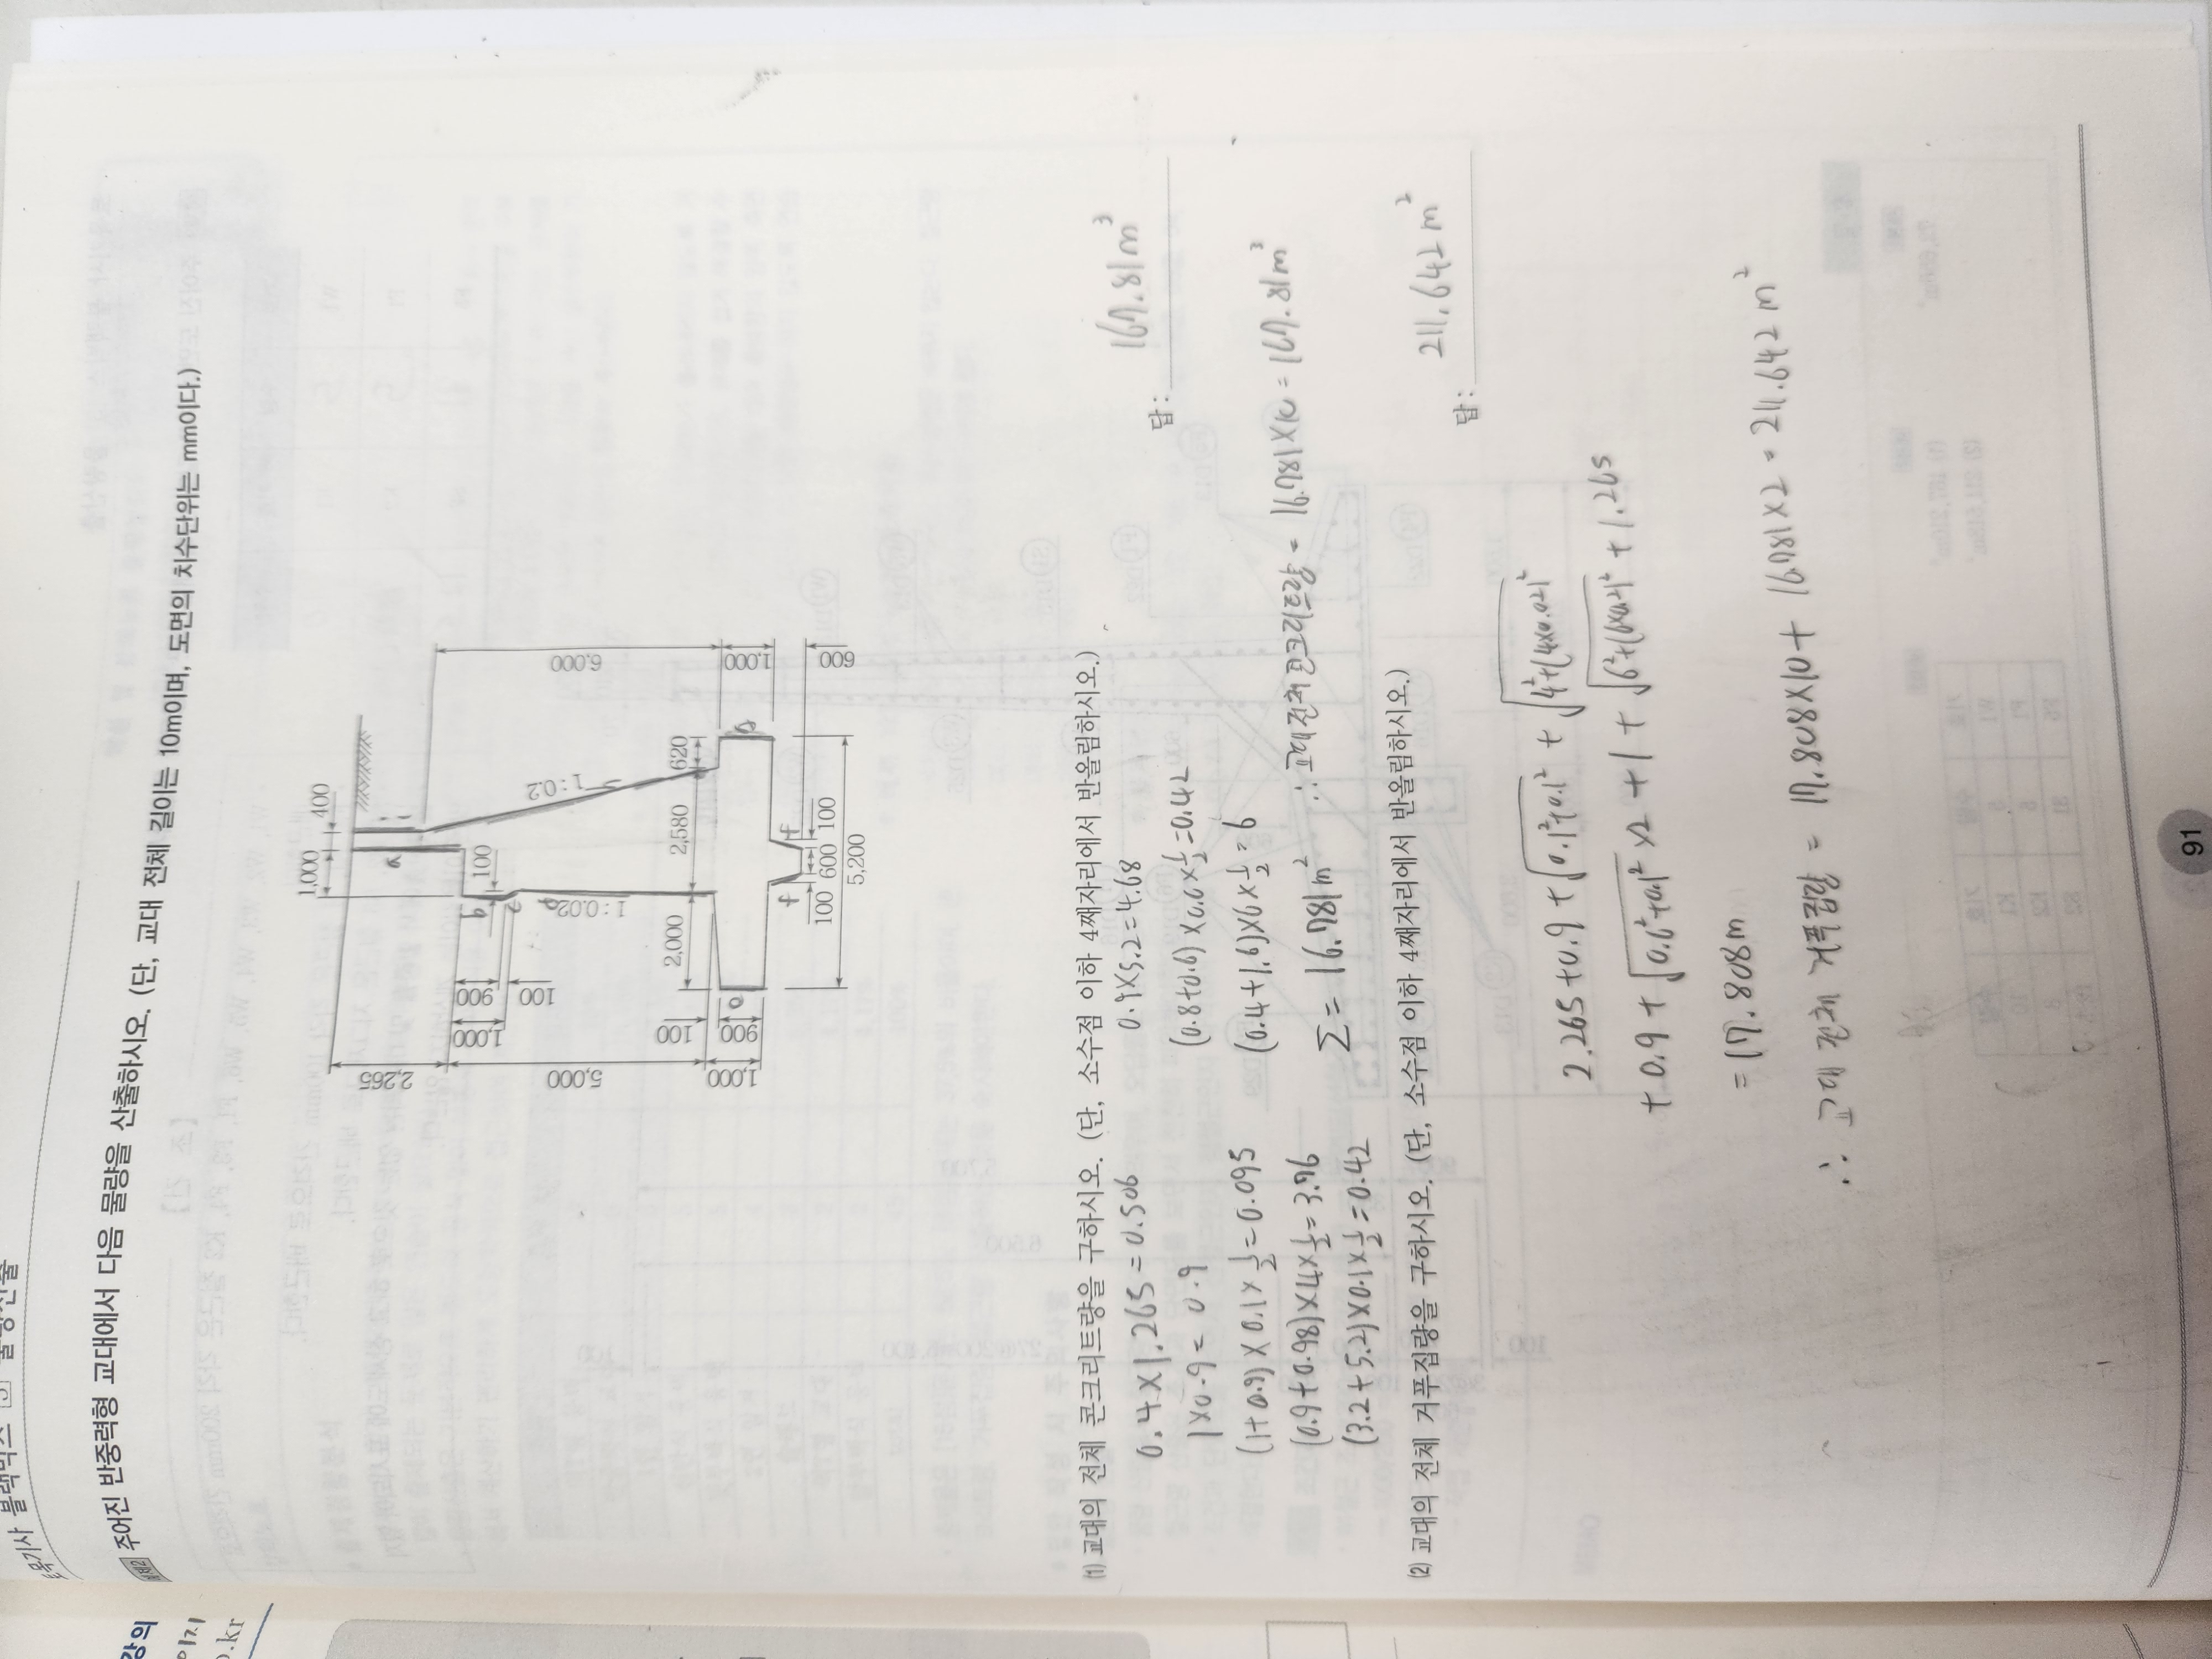 토목기사 블랙박스
주어진 반중력형 교대에서 다음 물량을 산출하시오. (단, 교대 전체 길이는 10m이며, 도면의 치수단위는 mm이다.)
1,000
400
2,265
900
1,000
100
100
5,000
6,000
1:0.02
1:0.2
2,000
2,580
620
100
900
1,000
1,000
600
100
600
100
5,200
(1) 교대의 전체 콘크리트량을 구하시오. (단, 소수점 이하 4째자리에서 반올림하시오.)
0.4×1.265=0.506
0.9×5.2=4.68
1×0.9=0.9
(0.8+0.6)×0.6×1/2=0.42
(1+0.9)×0.1×1/2=0.095
(0.4+1.6)×6×1/2=6
(0.9+0.98)×4×1/2=3.76
Σ=16.781m²
(3.2+5.2)×0.1×1/2=0.42
∴ 교대전체콘크리트량 = 16.781×10=167.81m³
답: 167.81m³
(2) 교대의 전체 거푸집량을 구하시오. (단, 소수점 이하 4째자리에서 반올림하시오.)
답: 211.642m²
2.265+0.9+√0.1²+0.1² + √4²+(4×0.02)²
+0.9+√0.6²+0.1² ×2+1+√6²+(6×0.2)² +1.265
=17.808m
∴ 교대 전체 거푸집량 = 17.808×10+16.781×2=211.642m²
91
강의
이지
.kr